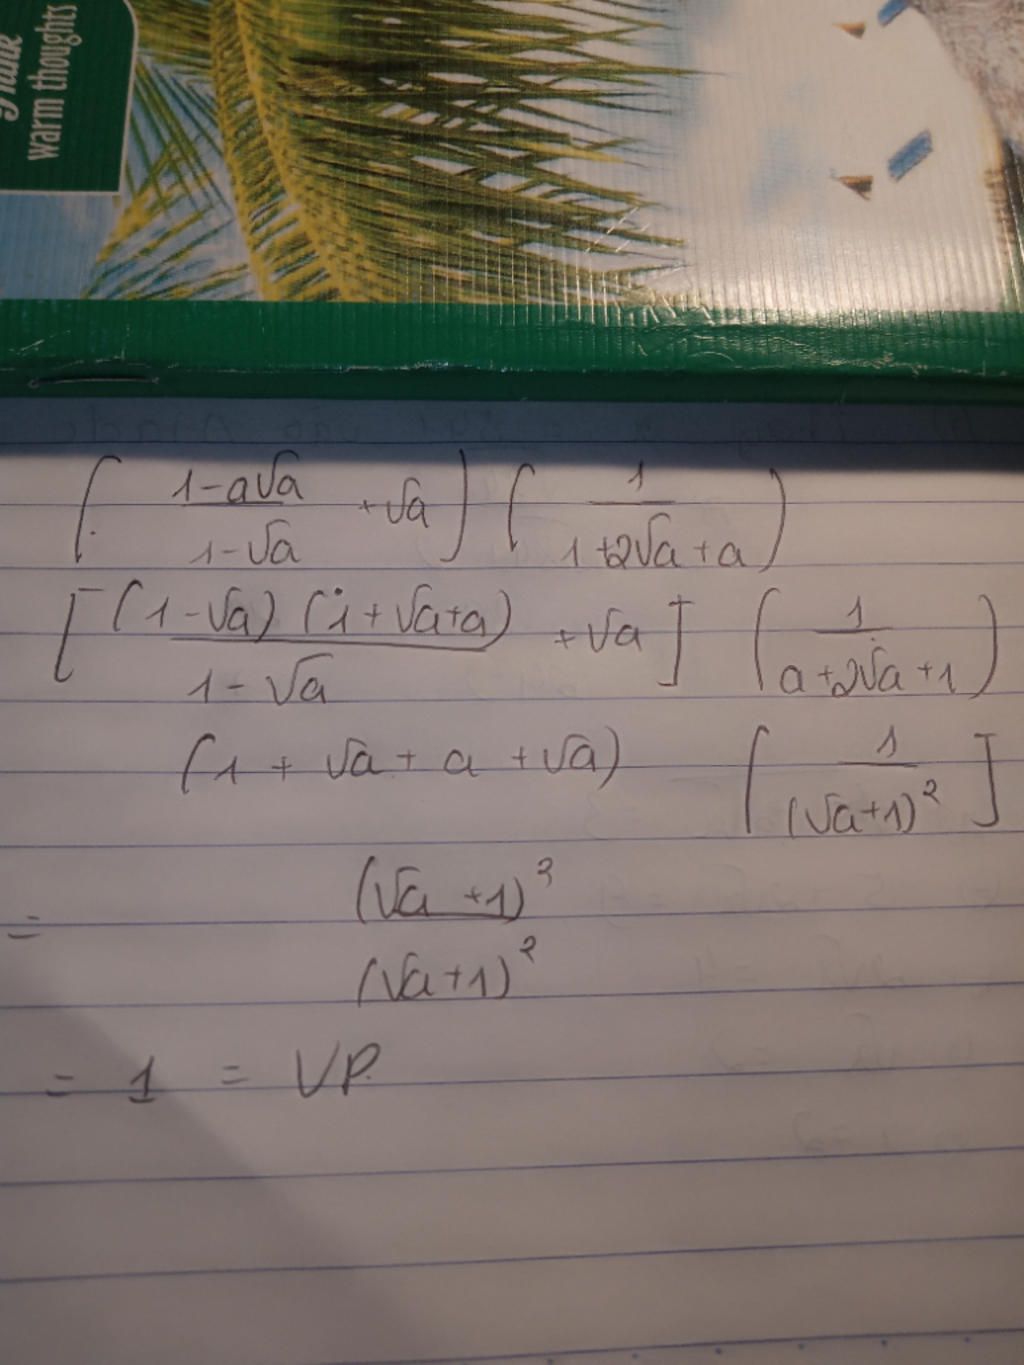 Think
warm thoughts
( (1-a√a)/(1-√a) + √a ) ( 1/(1+2√a+a) )
[ (1-√a)(1+√a+a)/(1-√a) + √a ] ( 1/(a+2√a+1) )
(1 + √a + a + √a) [ 1/(√a+1)² ]
= (√a+1)²/(√a+1)²
= 1 = VP.